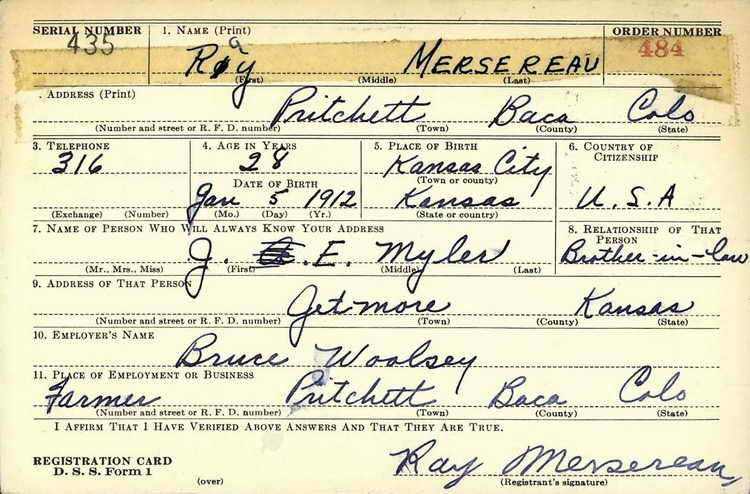 SERIAL NUMBER 1. NAME (Print) ORDER NUMBER
435 Ray MERSEREAU 484
(First) (Middle) (Last)
. ADDRESS (Print)
Pritchett Baca Colo
(Number and street or R. F. D. number) (Town) (County) (State)
3. TELEPHONE 4. AGE IN YEARS 5. PLACE OF BIRTH 6. COUNTRY OF CITIZENSHIP
316 28 Kansas City
(Town or county)
DATE OF BIRTH
Jan 5 1912 Kansas U.S.A
(Exchange) (Number) (Mo.) (Day) (Yr.) (State or country)
7. NAME OF PERSON WHO WILL ALWAYS KNOW YOUR ADDRESS 8. RELATIONSHIP OF THAT PERSON
J. E. Myler Brother-in-law
(Mr., Mrs., Miss) (First) (Middle) (Last)
9. ADDRESS OF THAT PERSON
Jetmore Kansas
(Number and street or R. F. D. number) (Town) (County) (State)
10. EMPLOYER'S NAME
Bruce Woolsey
11. PLACE OF EMPLOYMENT OR BUSINESS
Farmer Pritchett Baca Colo
(Number and street or R. F. D. number) (Town) (County) (State)
I AFFIRM THAT I HAVE VERIFIED ABOVE ANSWERS AND THAT THEY ARE TRUE.
REGISTRATION CARD
D. S. S. Form 1
(over)
Ray Mersereau
(Registrant's signature)